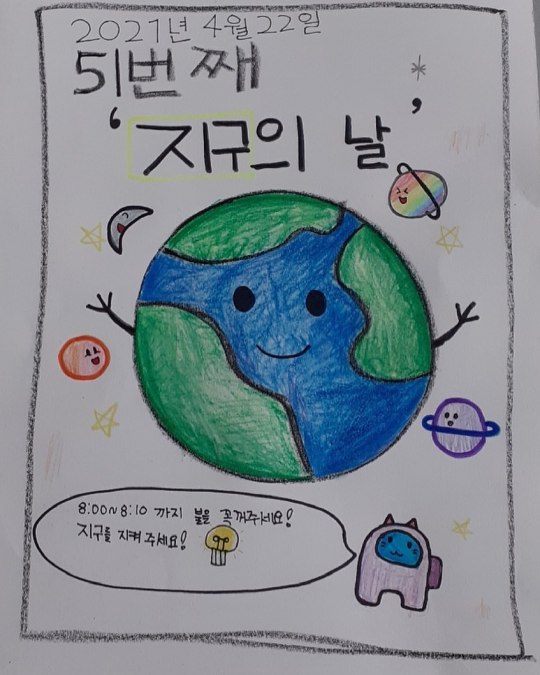 2021년 4월 22일
51번째
'지구의 날'
8:00~8:10 까지 불을 꼭꺼주세요!
지구를 지켜 주세요!